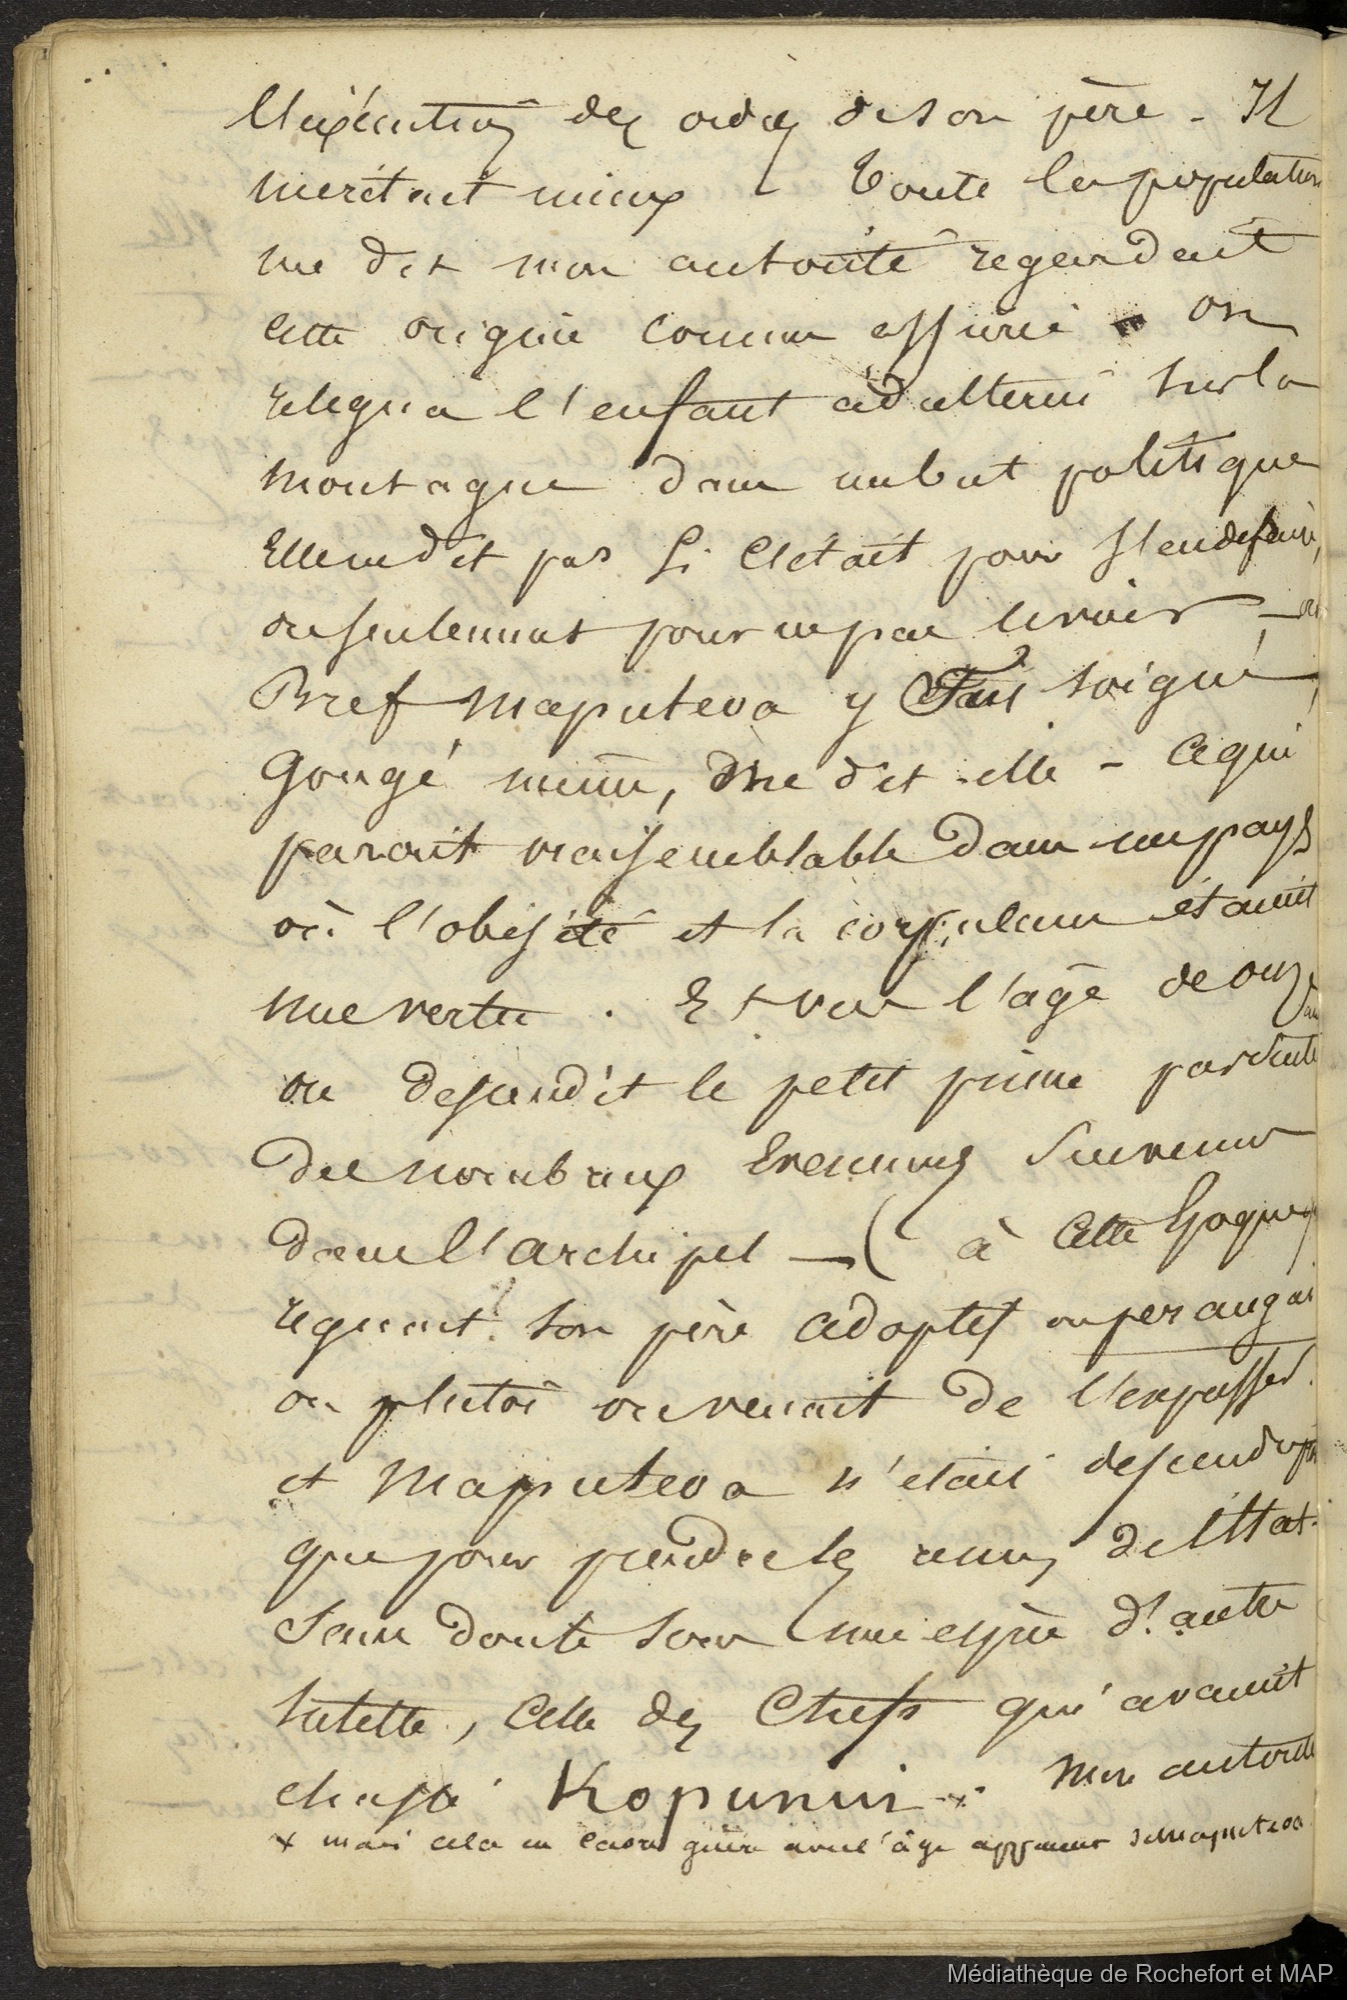 l'exécution des ordres de son père - Il
meritait mieux - Toute la population
me dit mon autorité regardait
cette origine comme assurée - on
relegua l'enfant adulterin sur la
montagne dans un but politique
Elle ne dit pas si c'était pour s'en defaire,
ou seulement pour ne pas le voir - 
Bref Maputeoa y fut soigné,
Gougé même, me dit-elle - Ce qui
parait vraisemblable dans un pays
où l'obésité et la corpulence étaient
une vertu. Et vers l'âge de onze ans
on descendit le petit prince par suite
de nombreux Evenemens survenus
dans l'archipel - ( à cette Epoque
regnait son père adoptif ou perangai
ou plutôt on venait de l'expulser.
et Maputeoa n'était descendu
que pour prendre les renes de l'Etat.
Sans doute sous une espèce d'autre
tutelle, Celle des Chefs qui avaient
chassé Kopunui x. Mon autorité
x mais cela ne cadre guère avec l'âge apparent de Maputeoa.
Médiathèque de Rochefort et MAP